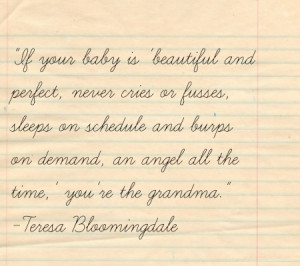 "If your baby is 'beautiful and
perfect, never cries or fusses,
sleeps on schedule and burps
on demand, an angel all the
time,' you're the grandma."
-Teresa Bloomingdale